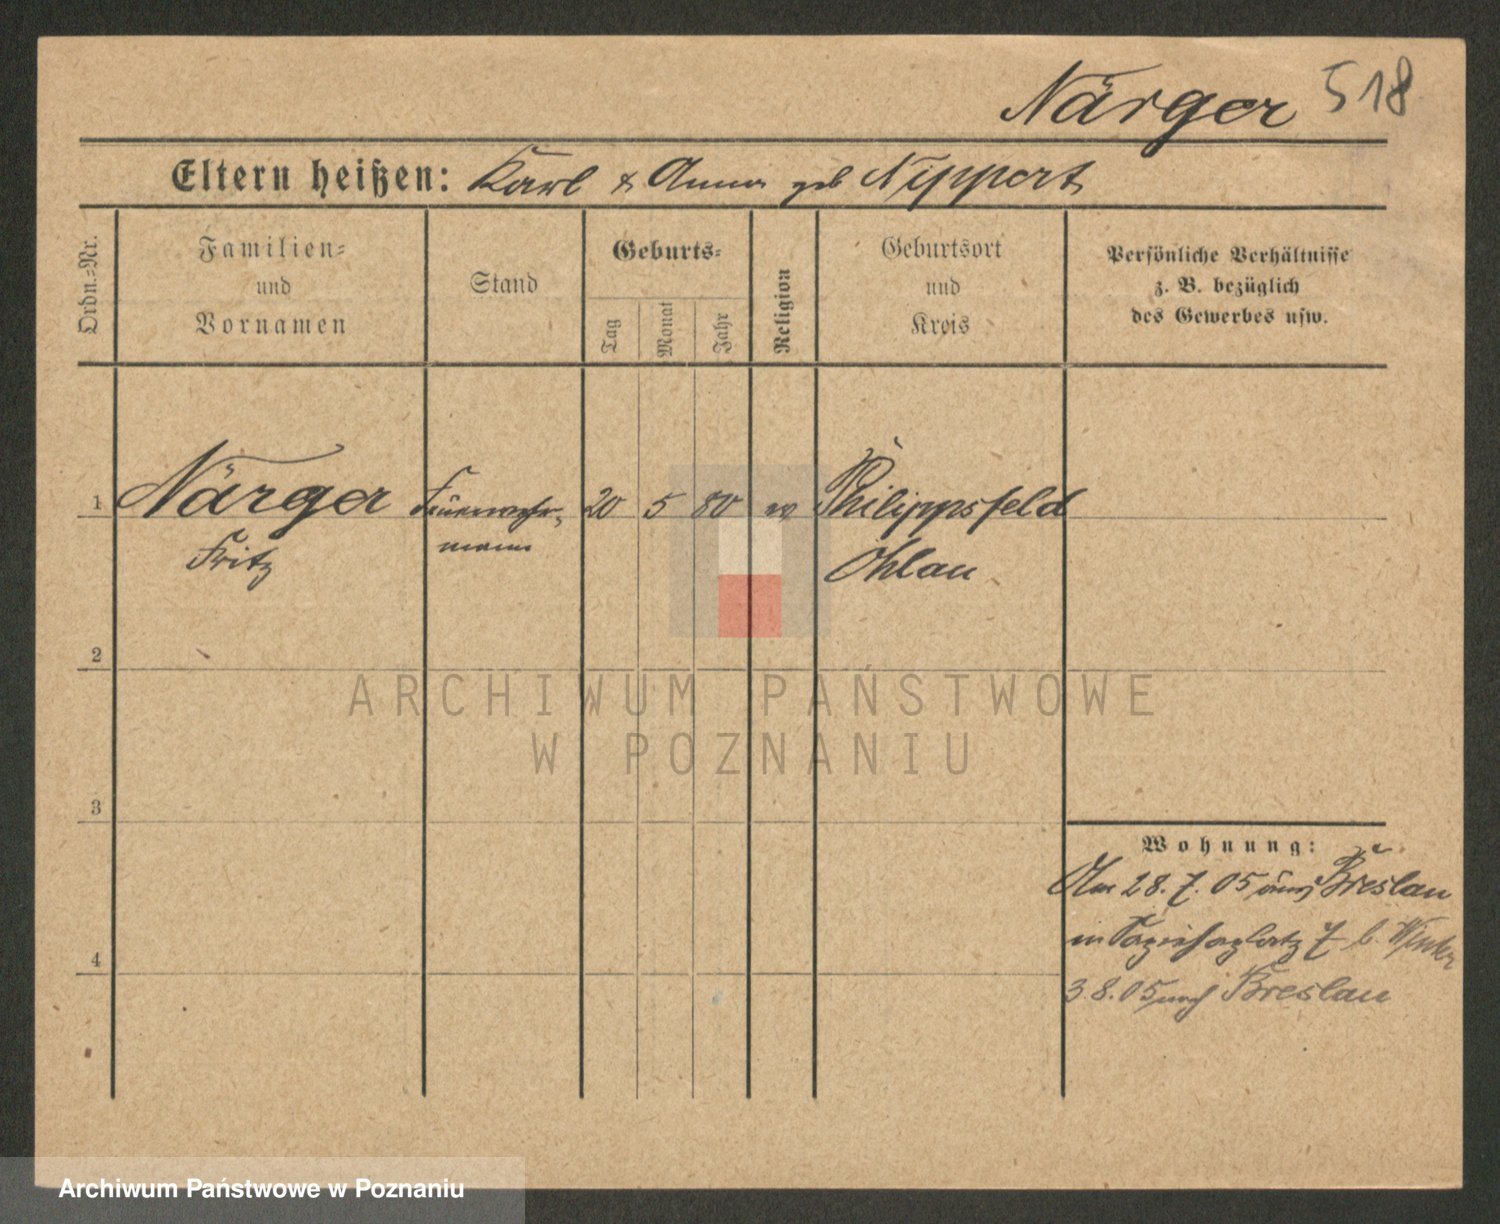 Närger 518
Eltern heißen: Karl & Anna geb Nippert
Ordn.=Nr.
Familien=
und
Vornamen
Stand
Geburts=
Tag
Monat
Jahr
Religion
Geburtsort
und
Kreis
Persönliche Verhältnisse
z. B. bezüglich
des Gewerbes usw.
1 Närger Feuerwehr- 20 5 80 ev Philippsfeld
Fritz mann Ohlau
2
ARCHIWUM PAŃSTWOWE
W POZNANIU
3
Wohnung:
Am 28. 7. 05 aus Breslau
in 7 b.
4
3. 8. 05 nach Breslau
Archiwum Państwowe w Poznaniu